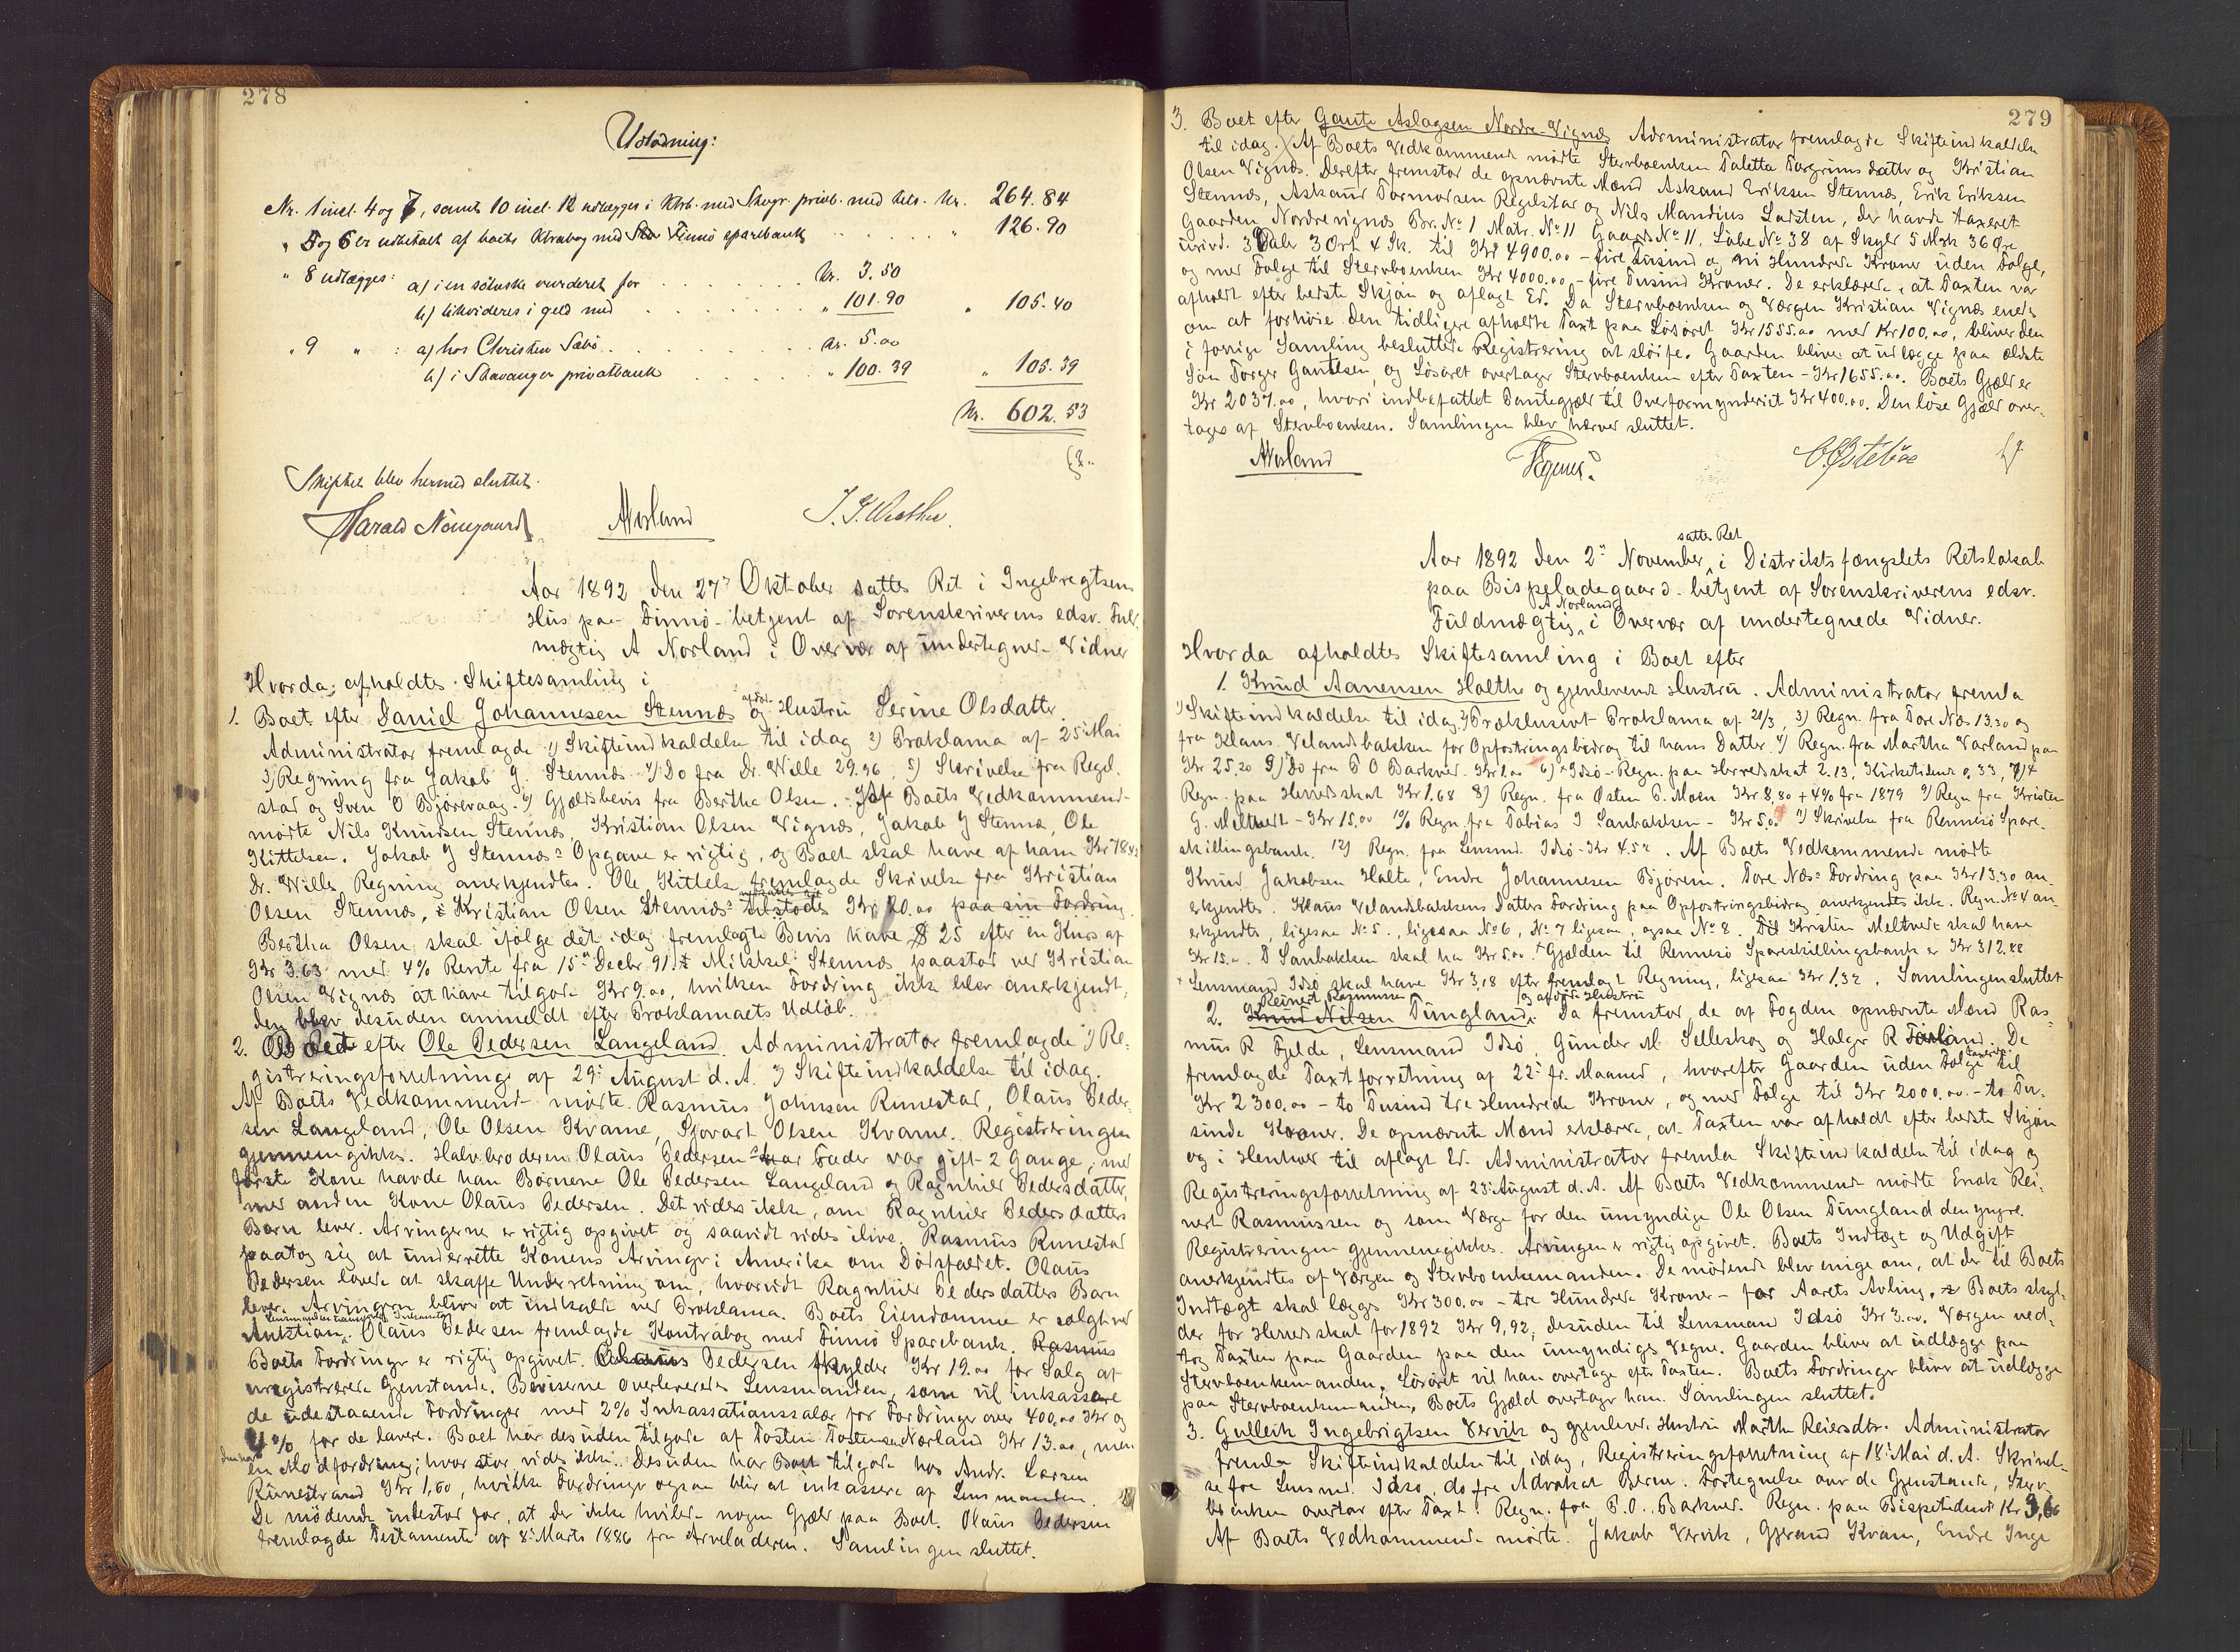 278
Udlodning:
Nr. 1 incl. 4 og 7, samt 10 incl. 12 udlægges i Ktrb. med Stvgr. privb. med tils. Kr. 264.84
" 5 og 6 er udbetalt af boets Ktrabog med Finnö sparebank " 126.90
" 8 udlægges: a) i en sölvske vurderet for Kr. 3.50
b) likvideres i gæld med " 101.90 " 105.40
" 9 " : a) hos Christen Sæbö Kr. 5.00
b) i Stavanger privatbank " 100.39 " 105.39
Kr. 602.53
Skiftet blev hermed sluttet.
Harald Nörregaard ANorland
Aar 1892 den 27' Oktober sattes Ret i Ingebregtsens
Hus paa Finnö betjent af Sorenskriverens edsv. Fuld-
mægtig A Norland i Overvær af undertegnede Vidner
Hvorda afholdtes Skiftesamling i
1. Boet efter Daniel Johannesen Stennæs og afdöde Hustru Serine Olsdatter
Administrator fremlagde 1) Skifteindkaldelse til idag 2) Proklama af 25' Mai
3) Regning fra Jakob J. Stennæs 4) Do fra Dr. Wille 29.96, 5) Skrivelse fra Regel-
stad og Sven O Björevaag. 6) Gjældsbevis fra Bertha Olsen. Af Boets Vedkommende
mödte Nils Knudsen Stennæs, Kristian Olsen Vignæs, Jakob J Stennæs, Ole
Kittelsen. Jakob J Stennæs's Opgave er rigtig, og Boet skal have af ham Kr 78.
Dr. Willes Regning anerkjendtes. Ole Kittelsen fremlagde Skrivelse fra Kristian
Olsen Stennæs, Kristian Olsen Stennæs's tilstodes Kr 20.00 paa sin Fordring
Bertha Olsen skal ifölge det idag fremlagte Bevis have $ 25 efter en Kurs af
Kr 3.63 med 4% Rente fra 15' Decbr 91. Mikkel Stennæs paastod ved Kristian
Olsen Vignæs at have tilgode Kr 9.00, hvilken Fordring ikke blev anerkjendt,
den blev desuden anmeldt efter Proklamaets Udlöb.
2. Boet efter Ole Pedersen Langeland. Administrator fremlagde 1) Re-
gistreringsforretning af 29' August d. A. 2) Skifteindkaldelse til idag.
Af Boets Vedkommende mödte Rasmus Johnsen Runestad, Olaus Peder-
sen Langeland, Ole Olsen Kvame, Sjovart Olsen Kvame. Registreringen
gjennemgikkes. Halvbroderen Olaus Pedersens Fader var gift 2 Gange, med
förste Kone havde han Börnene Ole Pedersen Langeland og Ragnhild Pedersdatter,
med anden Kone Olaus Pedersen. Det vides ikke, om Ragnhild Pedersdatters
Börn lever. Arvingerne er rigtig opgivet og saavidt vides ilive. Rasmus Runestad
paatog sig at underrette Konens Arvinger i Amerika om Dödsfaldet. Olaus
Pedersen lovede at skaffe Underretning om, hvorvidt Ragnhild Pedersdatters Börn
lever. Arvingerne bliver at indkalde ved Proklama. Boets Eiendomme er solgt ved
Auktion. Olaus Pedersen fremlagde Kontrabog med Finnö Sparebank. Rasmus
Boets Fordringer er rigtig opgivet. Olaus Pedersen skylder Kr 19.00 for Salg af
uregistrerede Gjenstande. Beviserne overleveredes Lensmanden, som vil inkassere
de udestaaende Fordringer med 2% Inkassationssalær for Fordringer over 400.00 Kr og
4% for de lavere. Boet har desuden tilgode af Tosten Tostensen Nærland Kr 13.00, men
en Modfordring; hvor stor vides ikke. Desuden har Boet tilgode hos Andr. Larsen
Runestrand Kr 1,60, hvilke Fordringer ogsaa blir at inkassere af Lensmanden.
De mödende indestod for, at der ikke hviler nogen Gjæld paa Boet. Olaus Pedersen
fremlagde Testamente af 8' Marts 1886 fra Arveladeren. Samlingen sluttet.
279
3. Boet efter Gaute Aslagsen Nordre Vignæs Administrator fremlagde Skifteindkaldelse
til idag. Af Boets Vedkommende mödte Stervboenken Taletta Torgrimsdatter og Kristian
Olsen Vignæs. Derefter fremstod de opnævnte Mænd Askaud Eriksen Stennæs, Erik Eriksen
Stennæs, Askaud Tormodsen Regelstad og Nils Mandius Ladsten, der havde taxeret
Gaarden Nordrevignæs Br. No 1 Matr. No 11 Gaards No 11, Löbe No 38 af Skyld 5 Mrk 36 Öre
urevid. 3 Daler 3 Ort 4 Sk. til Kr 4900.00 - fire Tusind og ni Hundrede Kroner uden Folge,
og med Folge til Stervboenken Kr 4000.00 - fire Tusind Kroner. De erklærede, at Taxten var
afholdt efter bedste Skjön og aflagt Ed. Da Stervboenken og Værgen Kristian Vignæs enedes
om at forhöie den tidligere afholdte Taxt paa Lösöret Kr 1555.00 med Kr 100.00, bliver den
i forrige Samling besluttede Registrering at slöife. Gaarden bliver at udlægge paa ældste
Sön Torger Gautesen, og Lösöret overtager Stervboenken efter Taxten - Kr 1655.00. Boets Gjæld er
Kr 2037.00, hvori indbefattet Pantegjæld til Overformynderiet Kr 400.00. Den löse Gjæld over-
tages af Stervboenken. Samlingen blev herved sluttet.
ANorland Vignes. O. Östebö
Aar 1892 den 2' November sattes Ret i Distriktsfængslets Retslokale
paa Bispeladegaard betjent af Sorenskriverens edsv.
Fuldmægtig A Norland i Overvær af undertegnede Vidner.
Hvorda afholdtes Skiftesamling i Boet efter
1. Knud Aanensen Halthe og gjenlevende Hustru. Administrator fremla
1) Skifteindkaldelse til idag, 2) Præklusivt Proklama af 21/3, 3) Regn. fra Tore Næs 13.30 og
fra Klaus Velandsbakken for Opfostringsbidrag til hans Datter. 4) Regn. fra Martha Varland paa
Kr 25,20 5) Do fra P O Barkved. Kr 1.00 6) Idsö-Regn. paa Herredsskat 2.13, Kirketidende 0,33, 7)
Regn. paa Herredsskat Kr 1,68 8) Regn. fra Östen P. Moen Kr 8,80 + 4% fra 1879 9) Regn fra Kristen
G. Meltvedt - Kr 15,00 10) Regn. fra Tobias I Sanbakken - Kr 5,00 11) Skrivelse fra Rennesö Spare-
skillingsbank. 12) Regn. fra Lensmd. Idsö - Kr 4.50. Af Boets Vedkommende mödte
Knud Jakobsen Halte, Endre Johannesen Björeim. Tore Næs's Fordring paa Kr 13.30 an-
erkjendtes. Klaus Velandsbakkens Datters Fordring paa Opfostringsbidrag anerkjendtes ikke. Regn. No 4 an-
erkjendtes, ligesaa No 5., ligesaa No 6, No 7 ligesaa, ogsaa No 8. Kristen Meltvedt skal have
Kr 15.00. T Sanbakken skal ha Kr 5.00. Gjælden til Rennesö Spareskillingsbank er Kr 312.88
Lensmand Idsö skal have Kr 3,18 efter fremlagt Regning, ligesaa Kr 1,32. Samlingen sluttet
2. Reinert Rasmussen Tungland og afdöde Hustru. Da fremstod de af Fogden opnævnte Mænd Ras-
mus R Fjelde, Lensmand Idsö, Gunder M. Selleskog og Halgr R Torland. De
fremlagde Taxtforretning af 22' fr. Maaned, hvorefter Gaarden uden Folge taxeredes til
Kr 2300.00 - to Tusind tre Hundrede Kroner, og med Folge til Kr 2000.00 - to Tu-
sinde Kroner. De opnævnte Mænd erklærede, at Taxten var afholdt efter bedste Skjön
og i Henhold til aflagt Ed. Administrator fremla Skifteindkaldelse til idag og
Registreringsforretning af 23' August d. A. Af Boets Vedkommende mödte Enok Rei-
nert Rasmussen og som Værge for den umyndige Ole Olsen Tungland den yngre.
Registreringen gjennemgikkes. Arvingen er rigtig opgivet. Boets Indtægt og Udgift
anerkjendtes af Værgen og Stervboenkemanden. De mödende blev enige om, at der til Boets
Indtægt skal lægges Kr 300.00 - tre Hundrede Kroner - for Aarets Avling. Boets skyl-
der for Herredsskat for 1892 Kr 9,92, desuden til Lensmand Idsö Kr 3.00. Værgen ved-
tog Taxten paa Gaarden paa den umyndiges Vegne. Gaarden bliver at udlægge paa
Stervboenkemanden. Lösöret vil han overtage efter Taxten. Boets Fordringer bliver at udlægge
paa Stervboenkemanden, Boets Gjæld overtager han. Samlingen sluttet.
3. Gulleik Ingebrigtsen Vervik og gjenlevd. Hustru Marthe Reiersdtr. Administrator
fremla Skifteindkaldelse til idag, Registreringsforretning af 18' Mai d. A. Skrivel-
se fra Lensmd. Idsö, do fra Advokat Berm. Fortegnelse over de Gjenstande, Sterv-
boenken overtar efter Taxt. Regn. fra P. O. Barkved. Regn. paa Bispetiende Kr 3,60
Af Boets Vedkommende mödte Jakob Vervik, Gjerand Kvam, Endre Inge